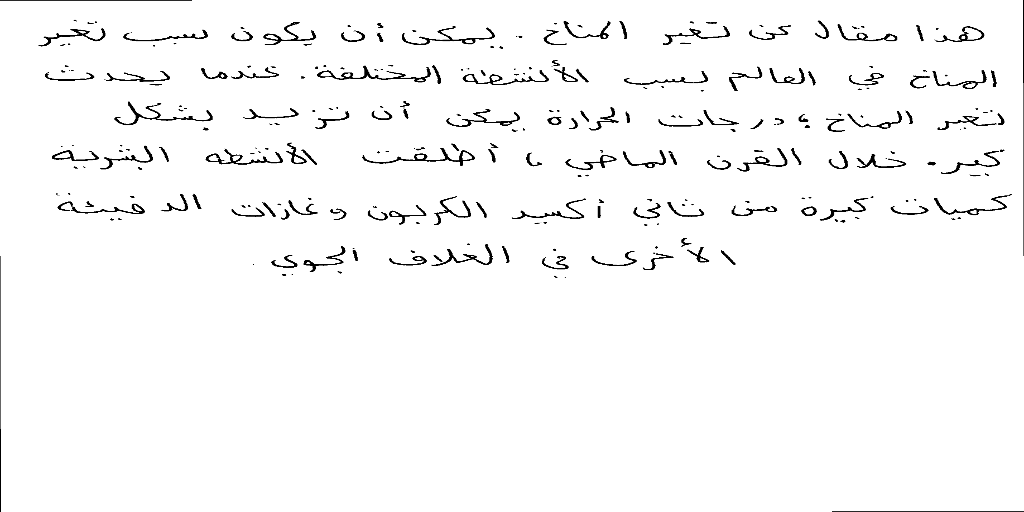 هذا مقال عن تغير المناخ . يمكن أن يكون سبب تغير
المناخ في العالم بسبب الأنشطة المختلفة . عندما يحدث
تغير المناخ ، درجات الحرارة يمكن أن تزيد بشكل
كبير . خلال القرن الماضي ، أطلقت الأنشطه البشرية
كميات كبيرة من ثاني أكسيد الكربون وغازات الدفيئة
الأخرى في الغلاف الجوي .